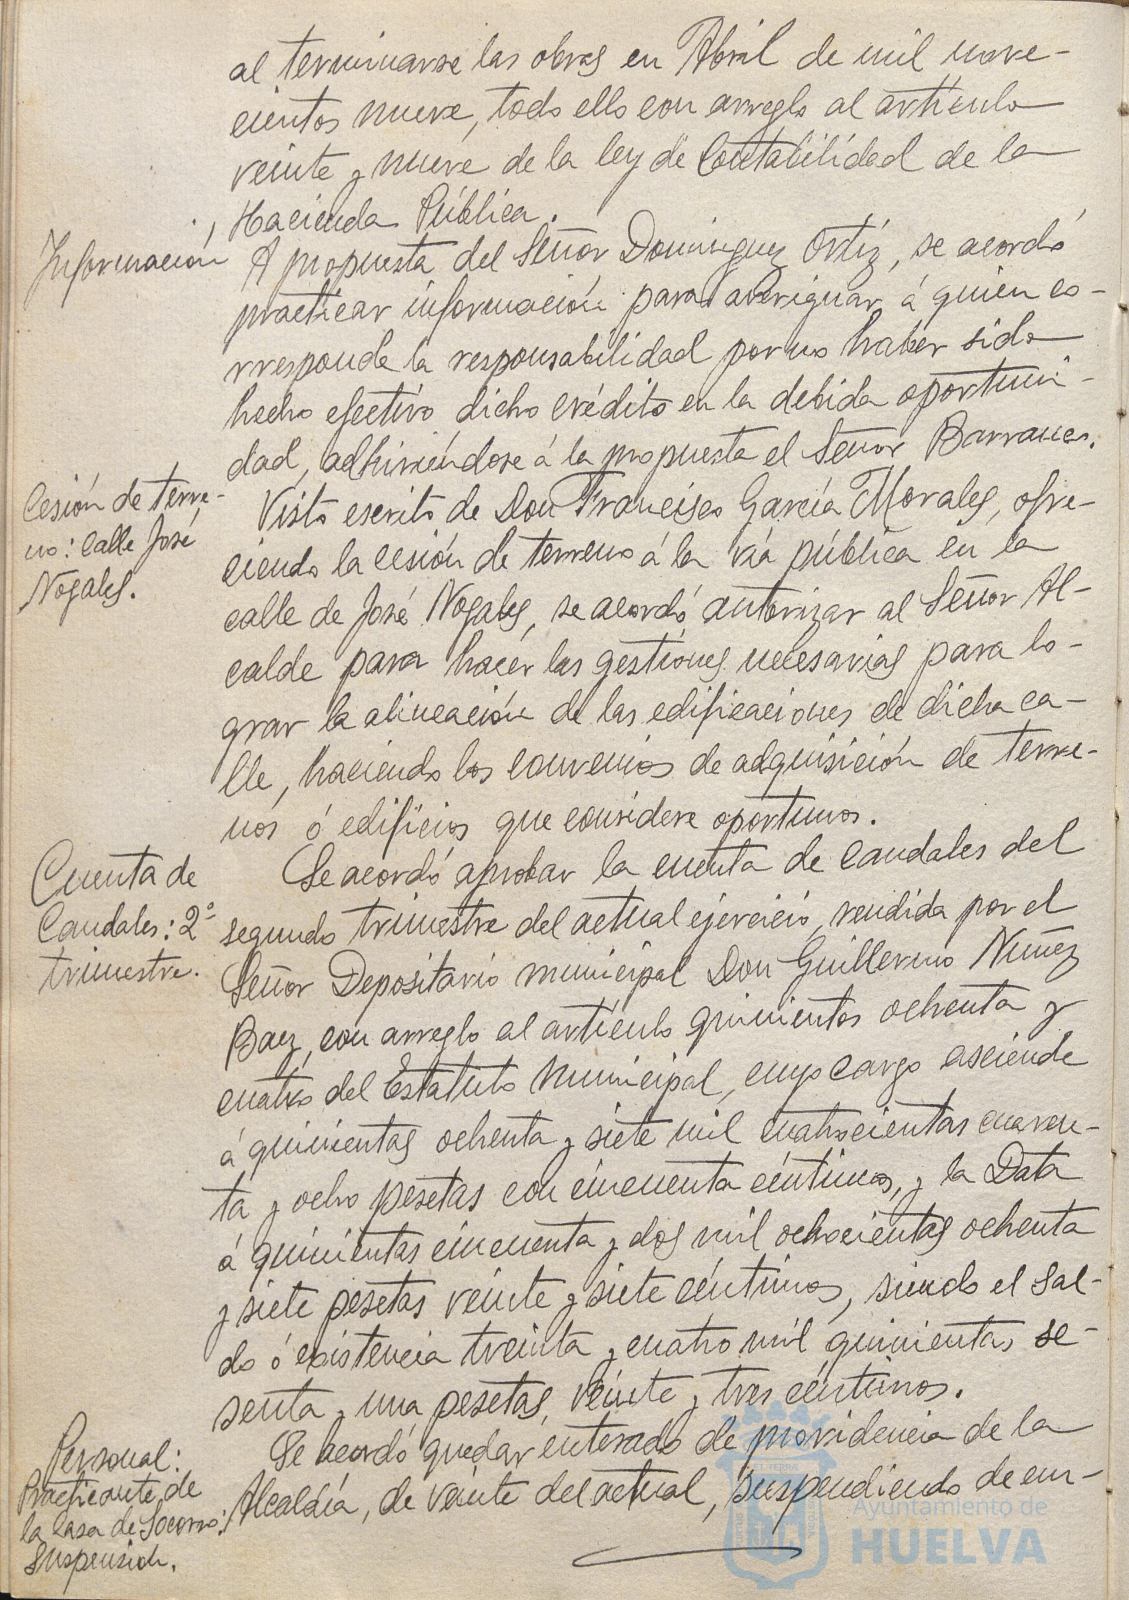 al terminarse las obras en Abril de mil nove-
cientos nueve, todo ello con arreglo al artículo
veinte y nueve de la ley de Contabilidad de la
Hacienda Pública.
Información
A propuesta del Señor Dominguez Ortíz, se acordó
practicar información para averiguar á quien co-
rresponde la responsabilidad por no haber sido
hecho efectivo dicho crédito en la debida oportuni-
dad, adhiriéndose á la propuesta el Señor Barranco.
Cesión de terre-
no: calle José
Nogales.
Visto escrito de Don Francisco García Morales, ofre-
ciendo la cesión de terreno á la vía pública en la
calle de José Nogales, se acordó autorizar al Señor Al-
calde para hacer las gestiones necesarias para lo-
grar la alineación de las edificaciones de dicha ca-
lle, haciendo los convenios de adquisición de terre-
nos ó edificios que considere oportunos.
Cuenta de
Caudales: 2º
trimestre.
Se acordó aprobar la cuenta de caudales del
segundo trimestre del actual ejercicio, rendida por el
Señor Depositario municipal Don Guillermo Núñez
Baez, con arreglo al artículo quinientos ochenta y
cuatro del Estatuto Municipal, cuyo cargo asciende
á quinientas ochenta y siete mil cuatrocientas cuaren-
ta y ocho pesetas con cincuenta céntimos, y la Data
á quinientas cincuenta y dos mil ochocientas ochenta
y siete pesetas veinte y siete céntimos, siendo el sal-
do ó existencia treinta y cuatro mil quinientas se-
senta y una pesetas, veinte y tres céntimos.
Personal:
Practicante de
la Casa de Socorro:
Suspensión.
Se acordó quedar enterado de providencia de la
Alcaldía, de veinte del actual, suspendiendo de em-
Ayuntamiento de
HUELVA